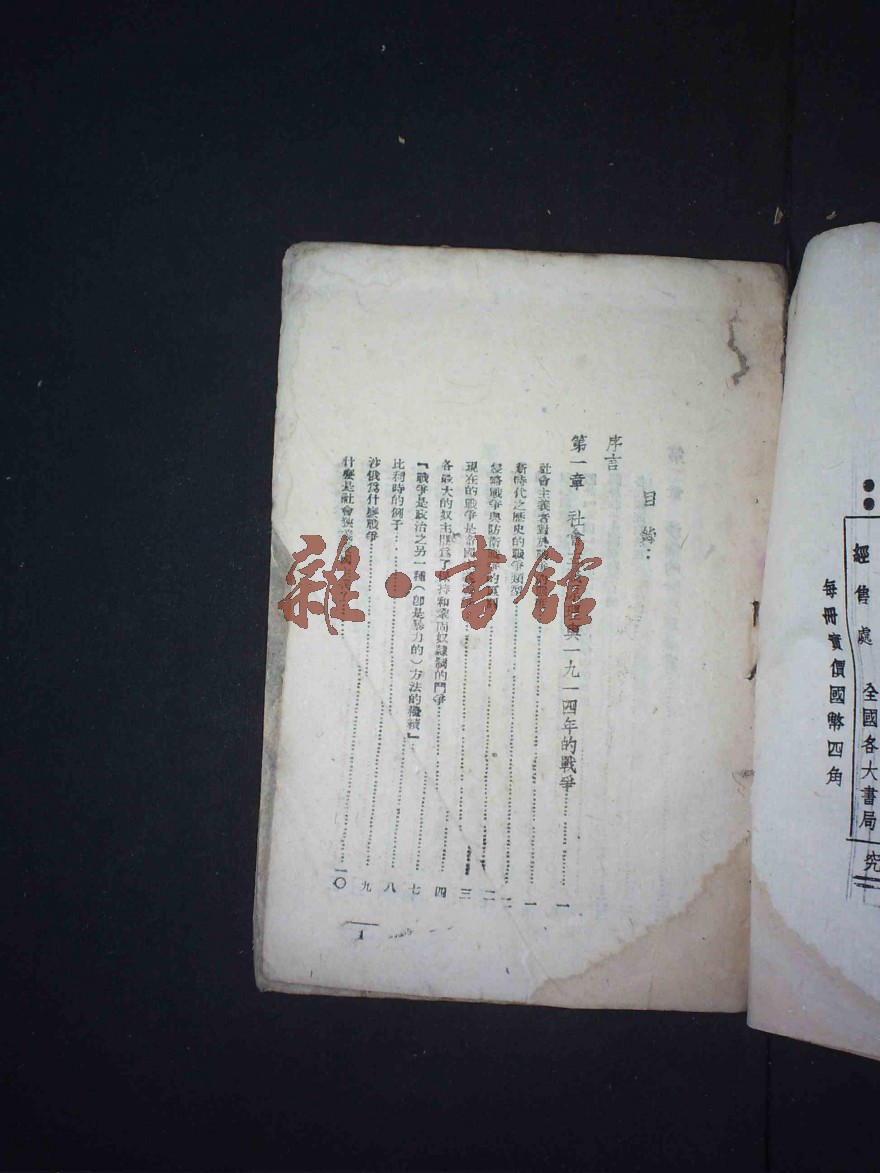 目錄：
序言
第一章 社會主義與一九一四年的戰爭 一
社會主義者對於戰爭 一
新時代之歷史的戰爭類型 二
侵略戰爭與防衛戰爭的 二
現在的戰爭是帝國 三
各最大的奴主間爲了保持和鞏固奴隸制的鬥爭 四
『戰爭是政治之另一種（卽是暴力的）方法的繼續』 七
比利時的例子 八
沙俄爲什麼戰爭 九
什麼是社會狹義 一〇
1
雜·書館
經售處 全國各大書局
每冊實價國幣四角
究